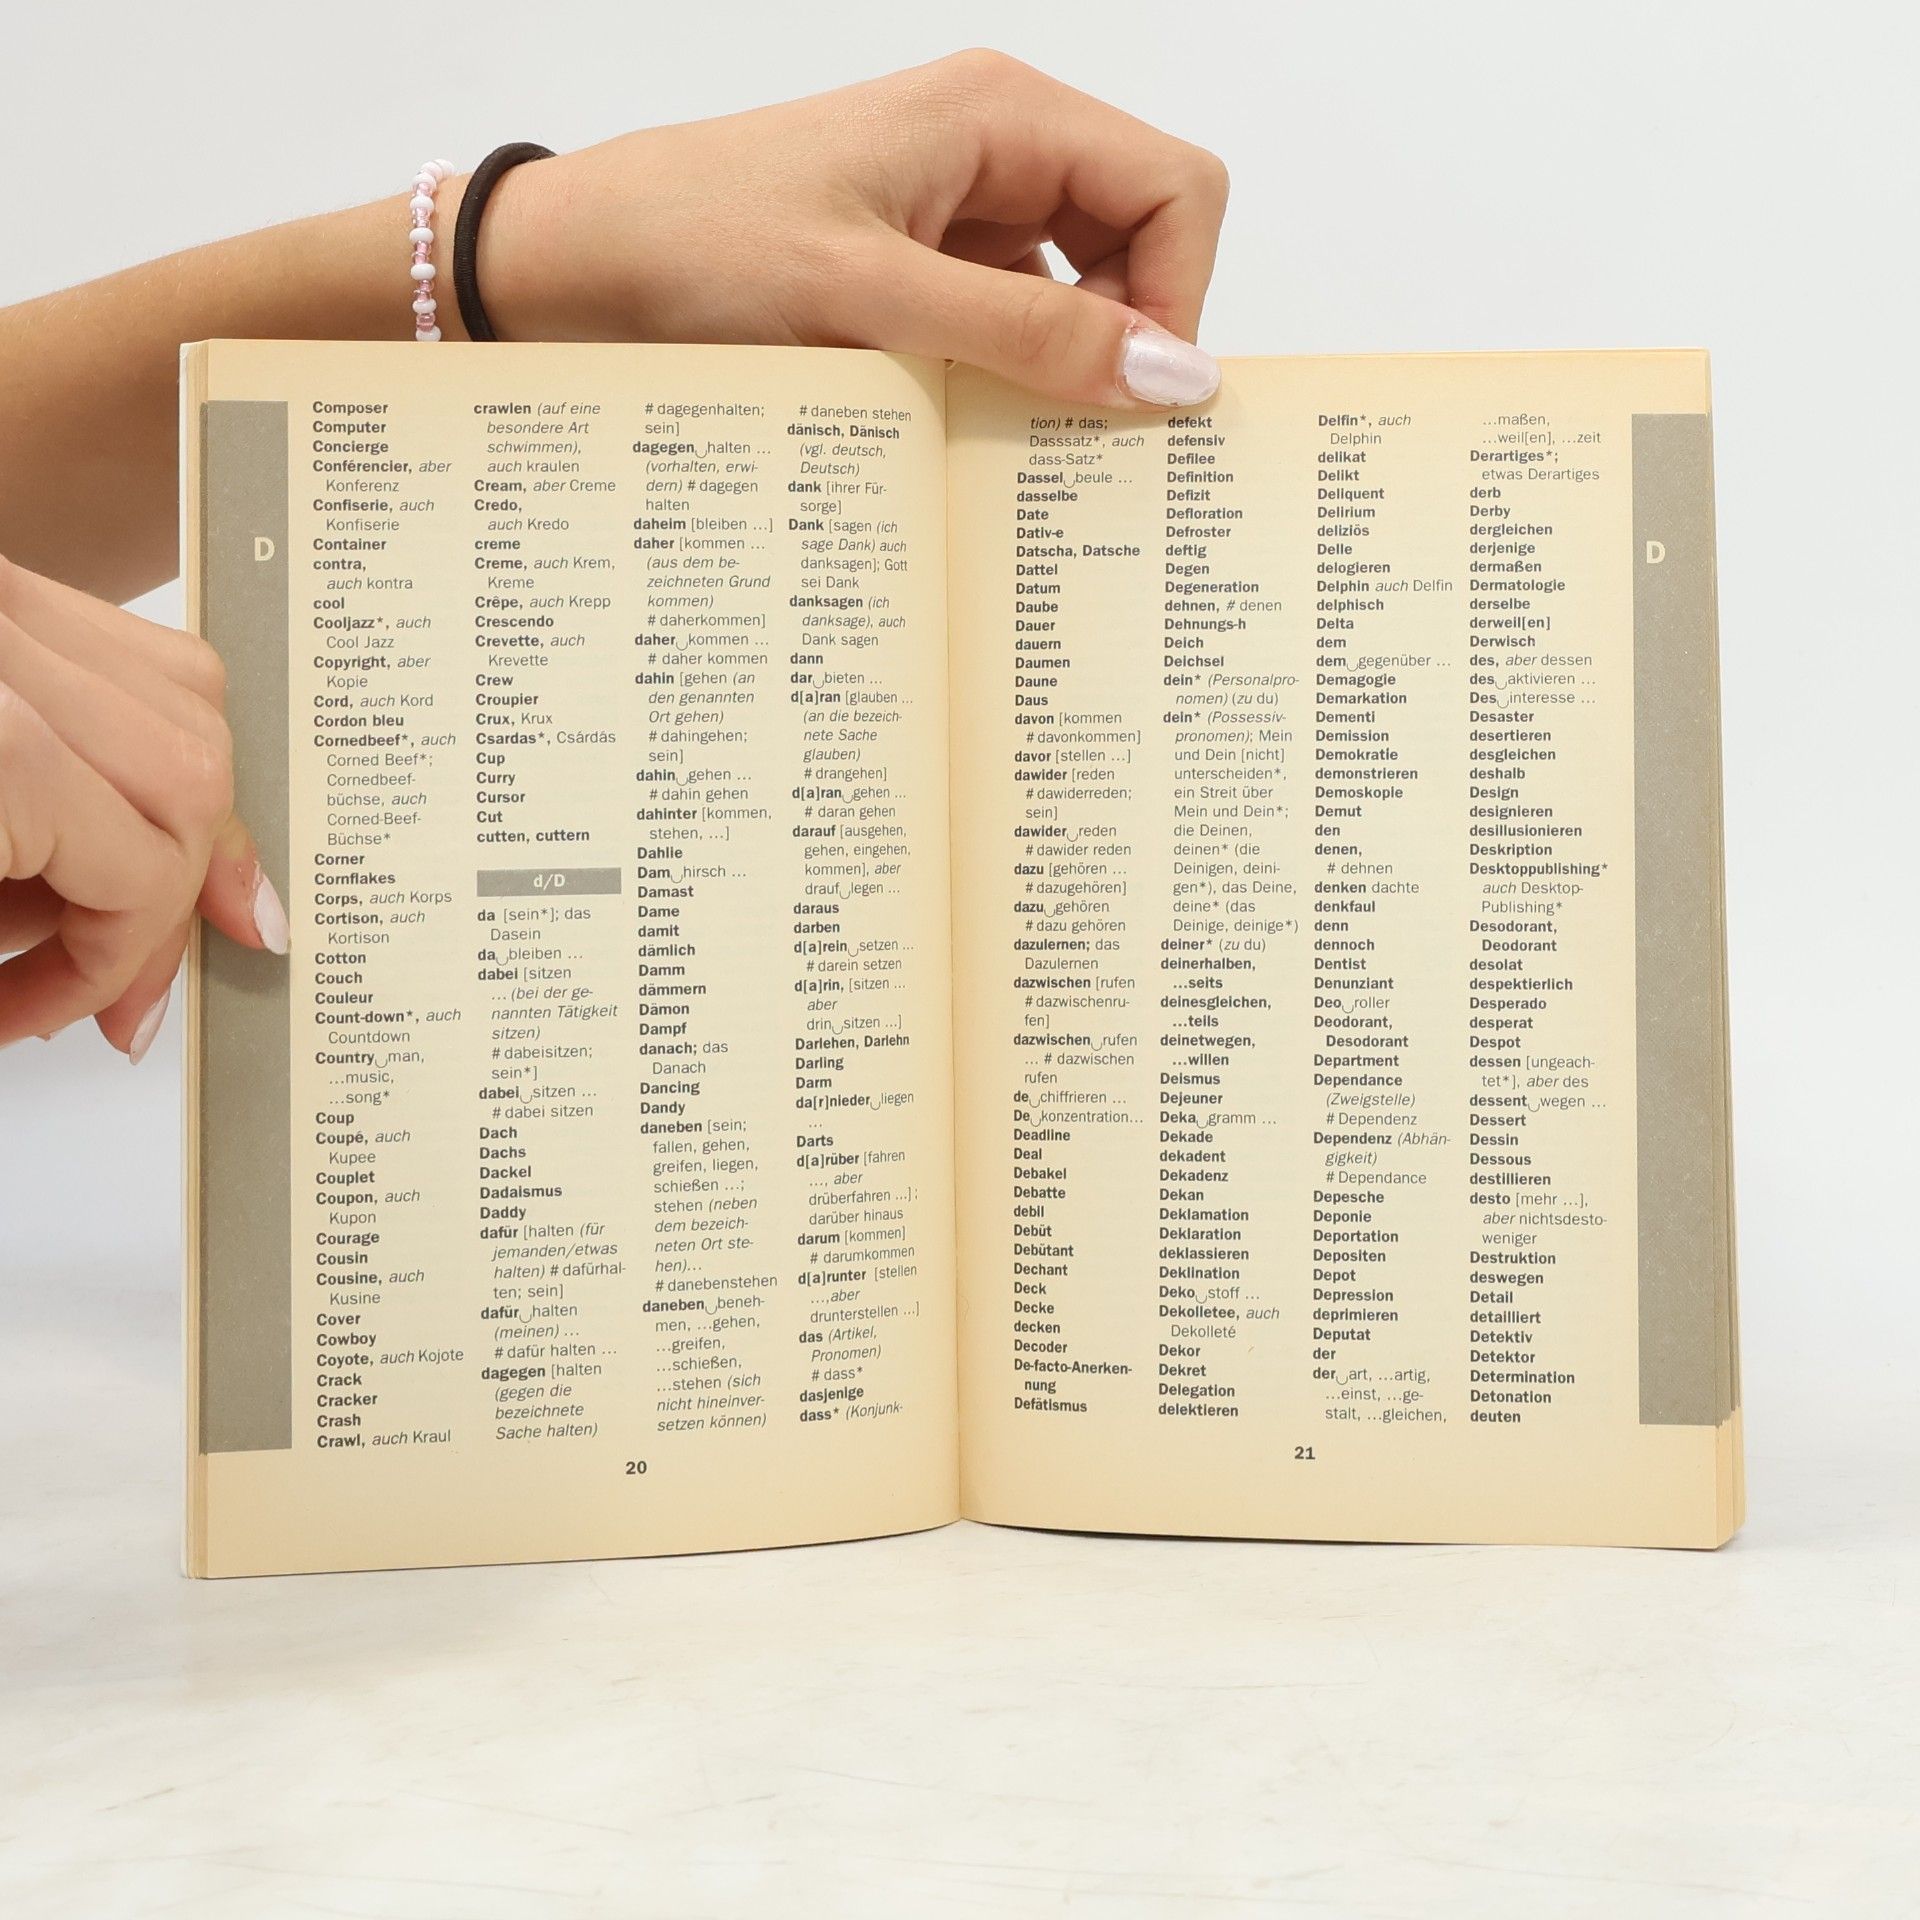 D
Composer
Computer
Concierge
Conférencier, aber
Konferenz
Confiserie, auch
Konfiserie
Container
contra,
auch kontra
cool
Cooljazz*, auch
Cool Jazz
Copyright, aber
Kopie
Cord, auch Kord
Cordon bleu
Cornedbeef*, auch
Corned Beef*;
Cornedbeef-
büchse, auch
Corned-Beef-
Büchse*
Corner
Cornflakes
Corps, auch Korps
Cortison, auch
Kortison
Cotton
Couch
Couleur
Count-down*, auch
Countdown
Country‿man,
...music,
...song*
Coup
Coupé, auch
Kupee
Couplet
Coupon, auch
Kupon
Courage
Cousin
Cousine, auch
Kusine
Cover
Cowboy
Coyote, auch Kojote
Crack
Cracker
Crash
Crawl, auch Kraul
crawlen (auf eine
besondere Art
schwimmen),
auch kraulen
Cream, aber Creme
Credo,
auch Kredo
creme
Creme, auch Krem,
Kreme
Crêpe, auch Krepp
Crescendo
Crevette, auch
Krevette
Crew
Croupier
Crux, Krux
Csardas*, Csárdás
Cup
Curry
Cursor
Cut
cutten, cuttern
d/D
da [sein*]; das
Dasein
da‿bleiben ...
dabei [sitzen
... (bei der ge-
nannten Tätigkeit
sitzen)
# dabeisitzen;
sein*]
dabei‿sitzen ...
# dabei sitzen
Dach
Dachs
Dackel
Dadaismus
Daddy
dafür [halten (für
jemanden/etwas
halten) # dafürhal-
ten; sein]
dafür‿halten
(meinen) ...
# dafür halten ...
dagegen [halten
(gegen die
bezeichnete
Sache halten)
# dagegenhalten;
sein]
dagegen‿halten ...
(vorhalten, erwi-
dern) # dagegen
halten
daheim [bleiben ...]
daher [kommen ...
(aus dem be-
zeichneten Grund
kommen)
# daherkommen]
daher‿kommen ...
# daher kommen
dahin [gehen (an
den genannten
Ort gehen)
# dahingehen;
sein]
dahin‿gehen ...
# dahin gehen
dahinter [kommen,
stehen, ...]
Dahlie
Dam‿hirsch ...
Damast
Dame
damit
dämlich
Damm
dämmern
Dämon
Dampf
danach; das
Danach
Dancing
Dandy
daneben [sein;
fallen, gehen,
greifen, liegen,
schießen ...;
stehen (neben
dem bezeich-
neten Ort ste-
hen)...
# danebenstehen
daneben‿beneh-
men, ...gehen,
...greifen,
...schießen,
...stehen (sich
nicht hineinver-
setzen können)
# daneben stehen
dänisch, Dänisch
(vgl. deutsch,
Deutsch)
dank [ihrer Für-
sorge]
Dank [sagen (ich
sage Dank) auch
danksagen]; Gott
sei Dank
danksagen (ich
danksage), auch
Dank sagen
dann
dar‿bieten ...
d[a]ran [glauben ...
(an die bezeich-
nete Sache
glauben)
# drangehen]
d[a]ran‿gehen ...
# daran gehen
darauf [ausgehen,
gehen, eingehen,
kommen], aber
drauf‿legen ...
daraus
darben
d[a]rein‿setzen ...
# darein setzen
d[a]rin, [sitzen ...
aber
drin‿sitzen ...]
Darlehen, Darlehn
Darling
Darm
da[r]nieder‿liegen
...
Darts
d[a]rüber [fahren
..., aber
drüberfahren ...];
darüber hinaus
darum [kommen]
# darumkommen
d[a]runter [stellen
...,aber
drunterstellen ...]
das (Artikel,
Pronomen)
# dass*
dasjenige
dass* (Konjunk-
20
tion) # das;
Dasssatz*, auch
dass-Satz*
Dassel‿beule ...
dasselbe
Date
Dativ-e
Datscha, Datsche
Dattel
Datum
Daube
Dauer
dauern
Daumen
Daune
Daus
davon [kommen
# davonkommen]
davor [stellen ...]
dawider [reden
# dawiderreden;
sein]
dawider‿reden
# dawider reden
dazu [gehören ...
# dazugehören]
dazu‿gehören
# dazu gehören
dazulernen; das
Dazulernen
dazwischen [rufen
# dazwischenru-
fen]
dazwischen‿rufen
... # dazwischen
rufen
de‿chiffrieren ...
De‿konzentration...
Deadline
Deal
Debakel
Debatte
debil
Debüt
Debütant
Dechant
Deck
Decke
decken
Decoder
De-facto-Anerken-
nung
Defätismus
defekt
defensiv
Defilee
Definition
Defizit
Defloration
Defroster
deftig
Degen
Degeneration
dehnen, # denen
Dehnungs-h
Deich
Deichsel
dein* (Personalpro-
nomen) (zu du)
dein* (Possessiv-
pronomen); Mein
und Dein [nicht]
unterscheiden*,
ein Streit über
Mein und Dein*;
die Deinen,
deinen* (die
Deinigen, deini-
gen*), das Deine,
deine* (das
Deinige, deinige*)
deiner* (zu du)
deinerhalben,
...seits
deinesgleichen,
...teils
deinetwegen,
...willen
Deismus
Dejeuner
Deka‿gramm ...
Dekade
dekadent
Dekadenz
Dekan
Deklamation
Deklaration
deklassieren
Deklination
Deko‿stoff ...
Dekolletee, auch
Dekolleté
Dekor
Dekret
Delegation
delektieren
Delfin*, auch
Delphin
delikat
Delikt
Deliquent
Delirium
deliziös
Delle
delogieren
Delphin auch Delfin
delphisch
Delta
dem
dem‿gegenüber ...
Demagogie
Demarkation
Dementi
Demission
Demokratie
demonstrieren
Demoskopie
Demut
den
denen,
# dehnen
denken dachte
denkfaul
denn
dennoch
Dentist
Denunziant
Deo‿roller
Deodorant,
Desodorant
Department
Dependance
(Zweigstelle)
# Dependenz
Dependenz (Abhän-
gigkeit)
# Dependance
Depesche
Deponie
Deportation
Depositen
Depot
Depression
deprimieren
Deputat
der
der‿art, ...artig,
...einst, ...ge-
stalt, ...gleichen,
...maßen,
...weil[en], ...zeit
Derartiges*;
etwas Derartiges
derb
Derby
dergleichen
derjenige
dermaßen
Dermatologie
derselbe
derweil[en]
Derwisch
des, aber dessen
des‿aktivieren ...
Des‿interesse ...
Desaster
desertieren
desgleichen
deshalb
Design
designieren
desillusionieren
Deskription
Desktoppublishing*
auch Desktop-
Publishing*
Desodorant,
Deodorant
desolat
despektierlich
Desperado
desperat
Despot
dessen [ungeach-
tet*], aber des
dessent‿wegen ...
Dessert
Dessin
Dessous
destillieren
desto [mehr ...],
aber nichtsdesto-
weniger
Destruktion
deswegen
Detail
detailliert
Detektiv
Detektor
Determination
Detonation
deuten
D
21